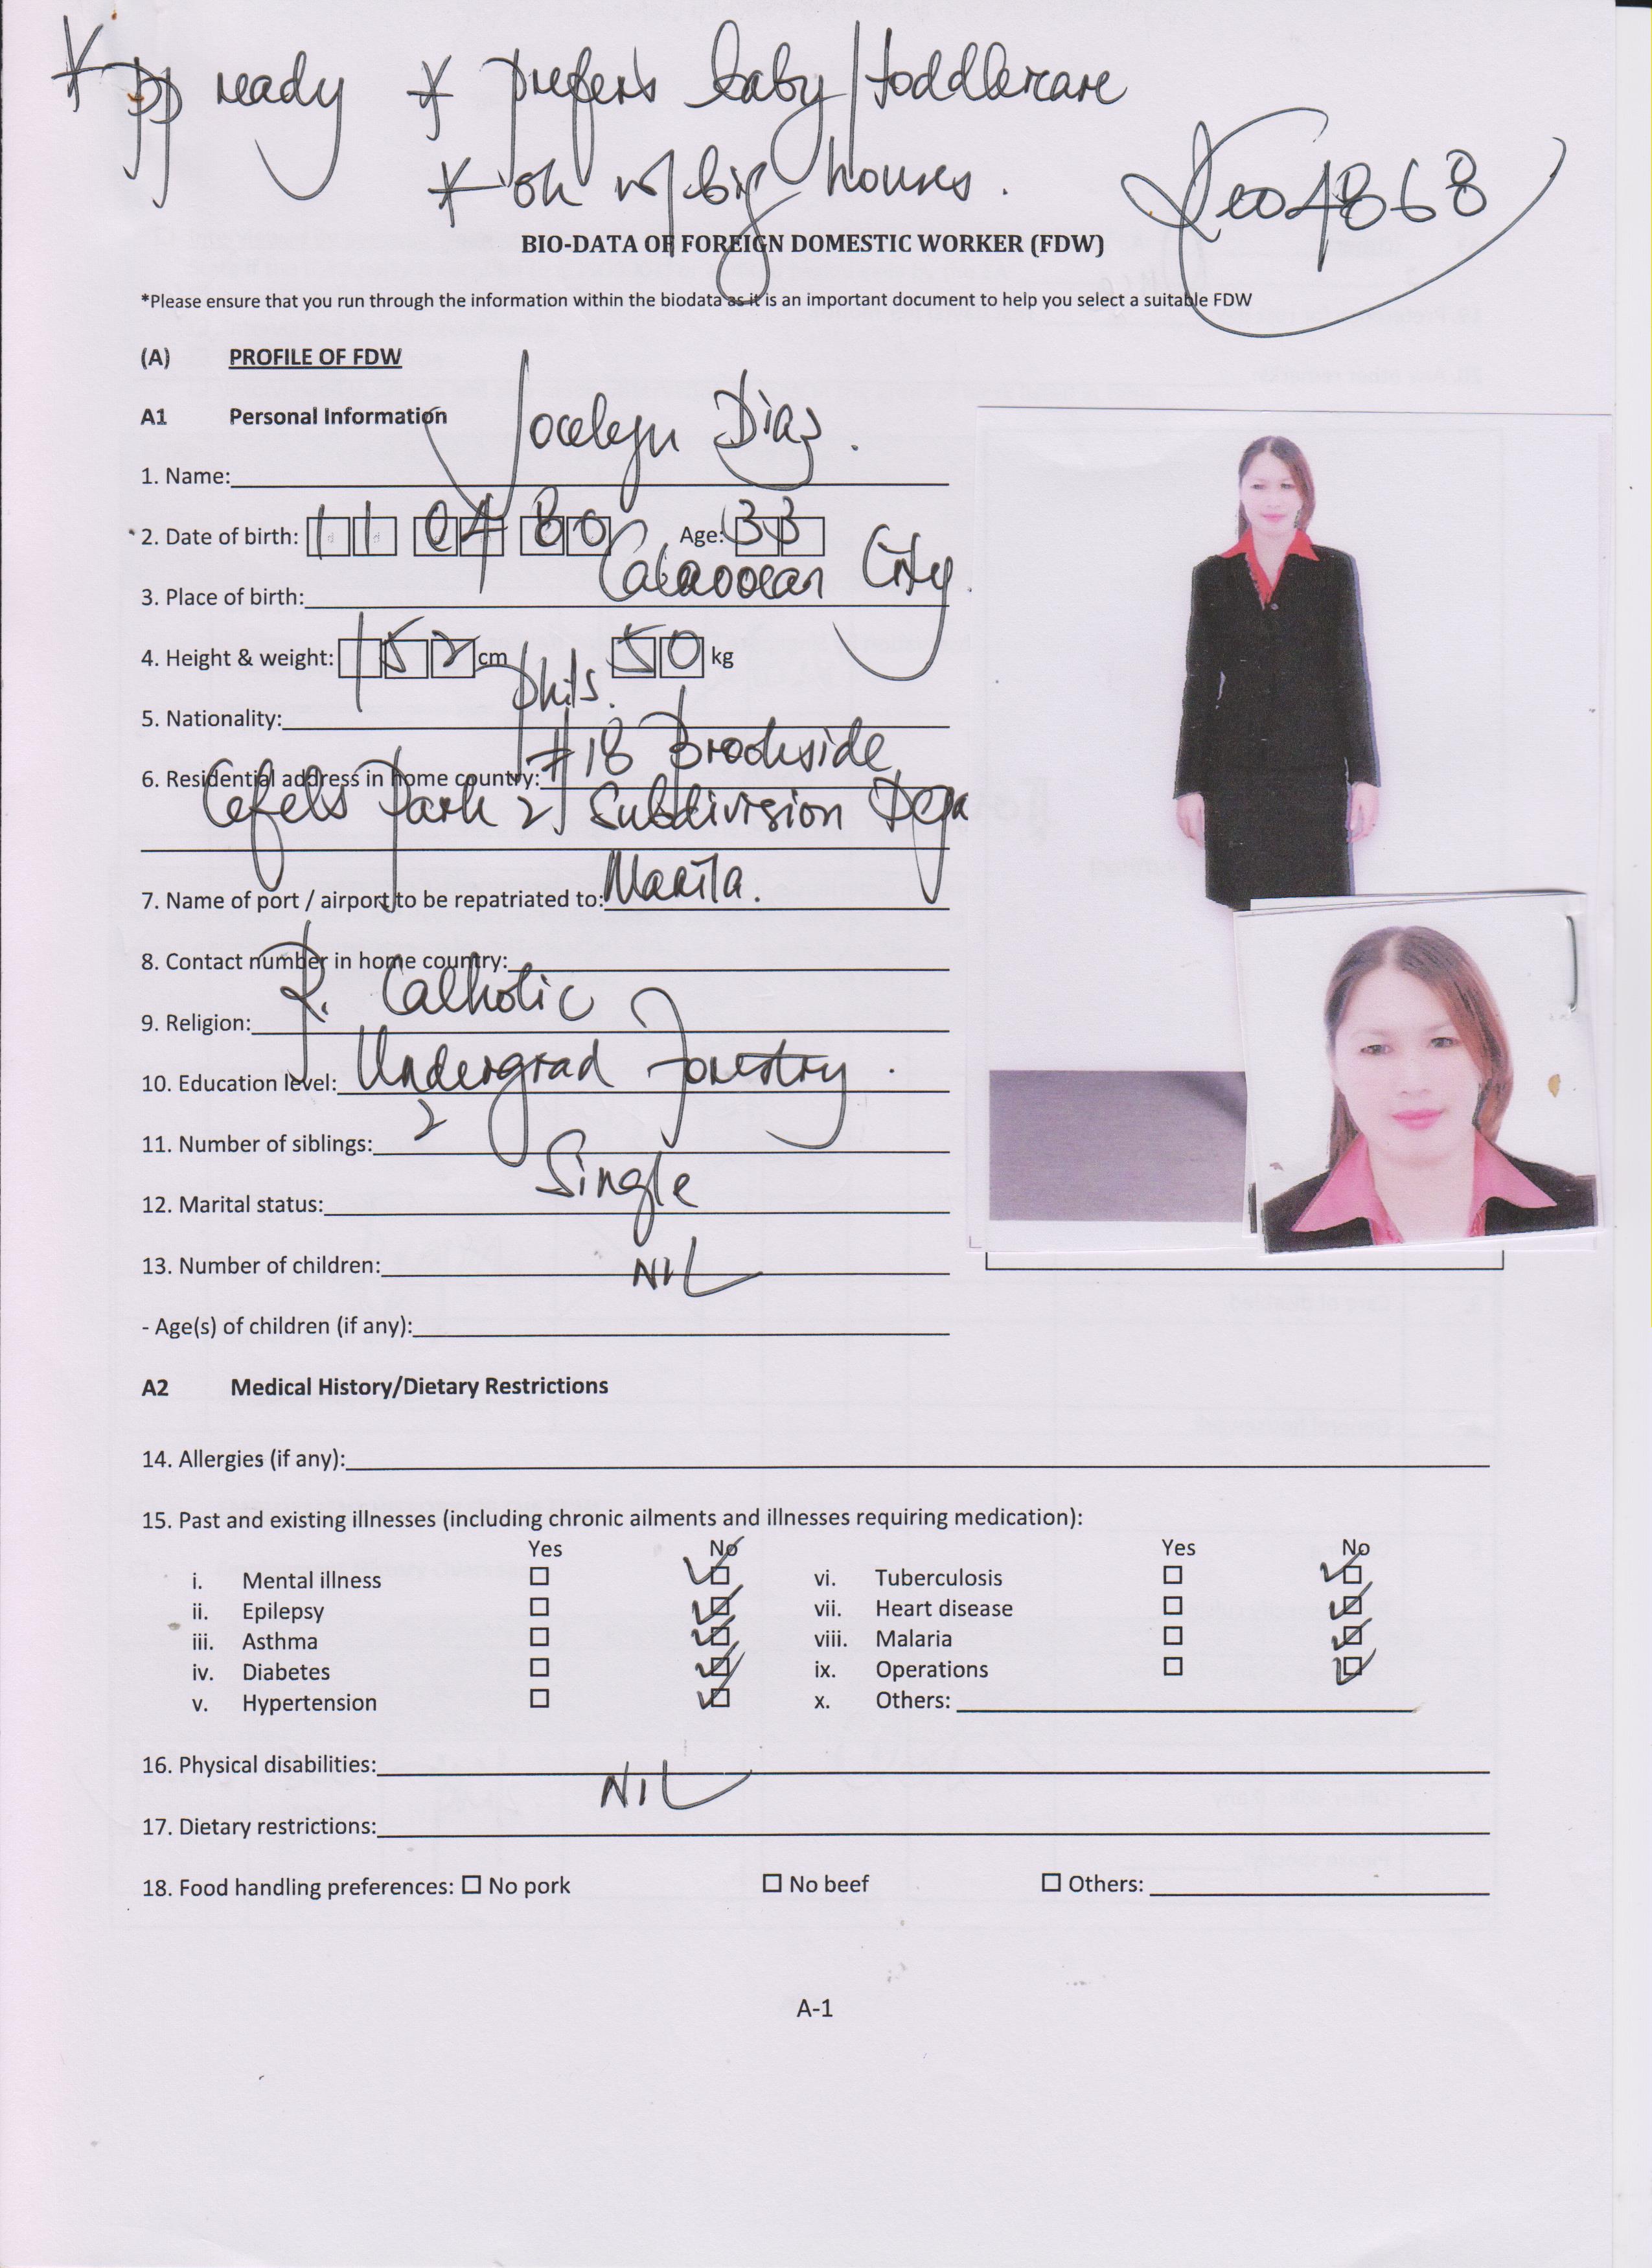 * pp ready * prefers baby/toddlercare
* ok w/ big houses.
4868
BIO-DATA OF FOREIGN DOMESTIC WORKER (FDW)
*Please ensure that you run through the information within the biodata as it is an important document to help you select a suitable FDW
(A) PROFILE OF FDW
A1 Personal Information
1. Name: Jocelyn Diaz.
2. Date of birth: 11 04 80 Age: 33
3. Place of birth: Calaoocan City
4. Height & weight: 152 cm 50 kg
5. Nationality: Phils.
6. Residential address in home country: #18 Brookside
Park 2 Subdivision
7. Name of port / airport to be repatriated to: Manila.
8. Contact number in home country:
9. Religion: R. Catholic
10. Education level: Undergrad Forestry.
11. Number of siblings: 2
12. Marital status: Single
13. Number of children: NIL
- Age(s) of children (if any):
A2 Medical History/Dietary Restrictions
14. Allergies (if any):
15. Past and existing illnesses (including chronic ailments and illnesses requiring medication):
Yes No Yes No
i. Mental illness ☐ ☑ vi. Tuberculosis ☐ ☑
ii. Epilepsy ☐ ☑ vii. Heart disease ☐ ☑
iii. Asthma ☐ ☑ viii. Malaria ☐ ☑
iv. Diabetes ☐ ☑ ix. Operations ☐ ☑
v. Hypertension ☐ ☑ x. Others:
16. Physical disabilities: NIL
17. Dietary restrictions:
18. Food handling preferences: ☐ No pork ☐ No beef ☐ Others:
A-1